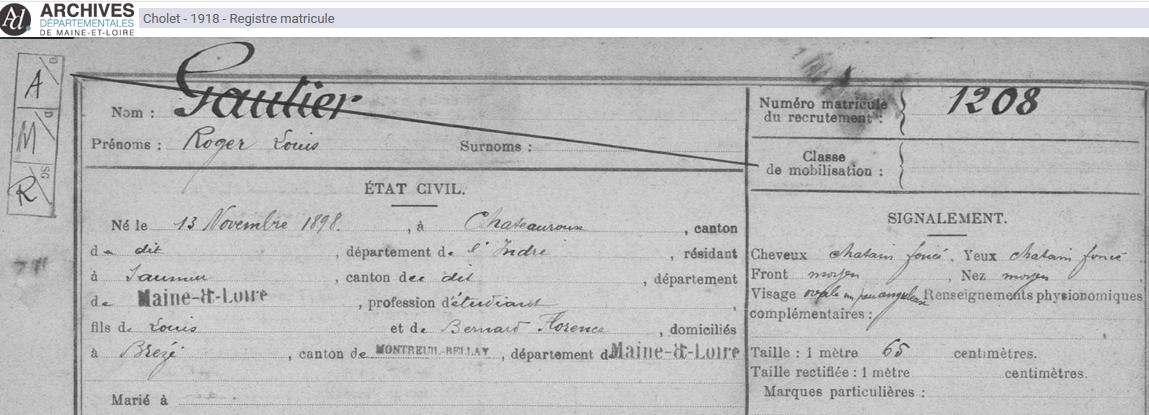 ARCHIVES
DÉPARTEMENTALES
DE MAINE-ET-LOIRE
Cholet - 1918 - Registre matricule
A
M
R
D
SG
Nom : Gaultier
Prénoms : Roger Louis Surnoms :
Numéro matricule du recrutement : 1208
Classe de mobilisation :
ÉTAT CIVIL.
Né le 13 Novembre 1898. , à Chateauroux , canton
de dit , département de l'Indre , résidant
à Saumur , canton de dit , département
de Maine-&-Loire , profession d'étudiant ,
fils de Louis et de Bernard Florence , domiciliés
à Brezé , canton de MONTREUIL-BELLAY , département de Maine-&-Loire
Marié à
SIGNALEMENT.
Cheveux chatain foncé , Yeux chatain foncé
Front moyen , Nez moyen
Visage ovale un peu anguleux Renseignements physionomiques
complémentaires :
Taille : 1 mètre 65 centimètres.
Taille rectifiée : 1 mètre centimètres.
Marques particulières :